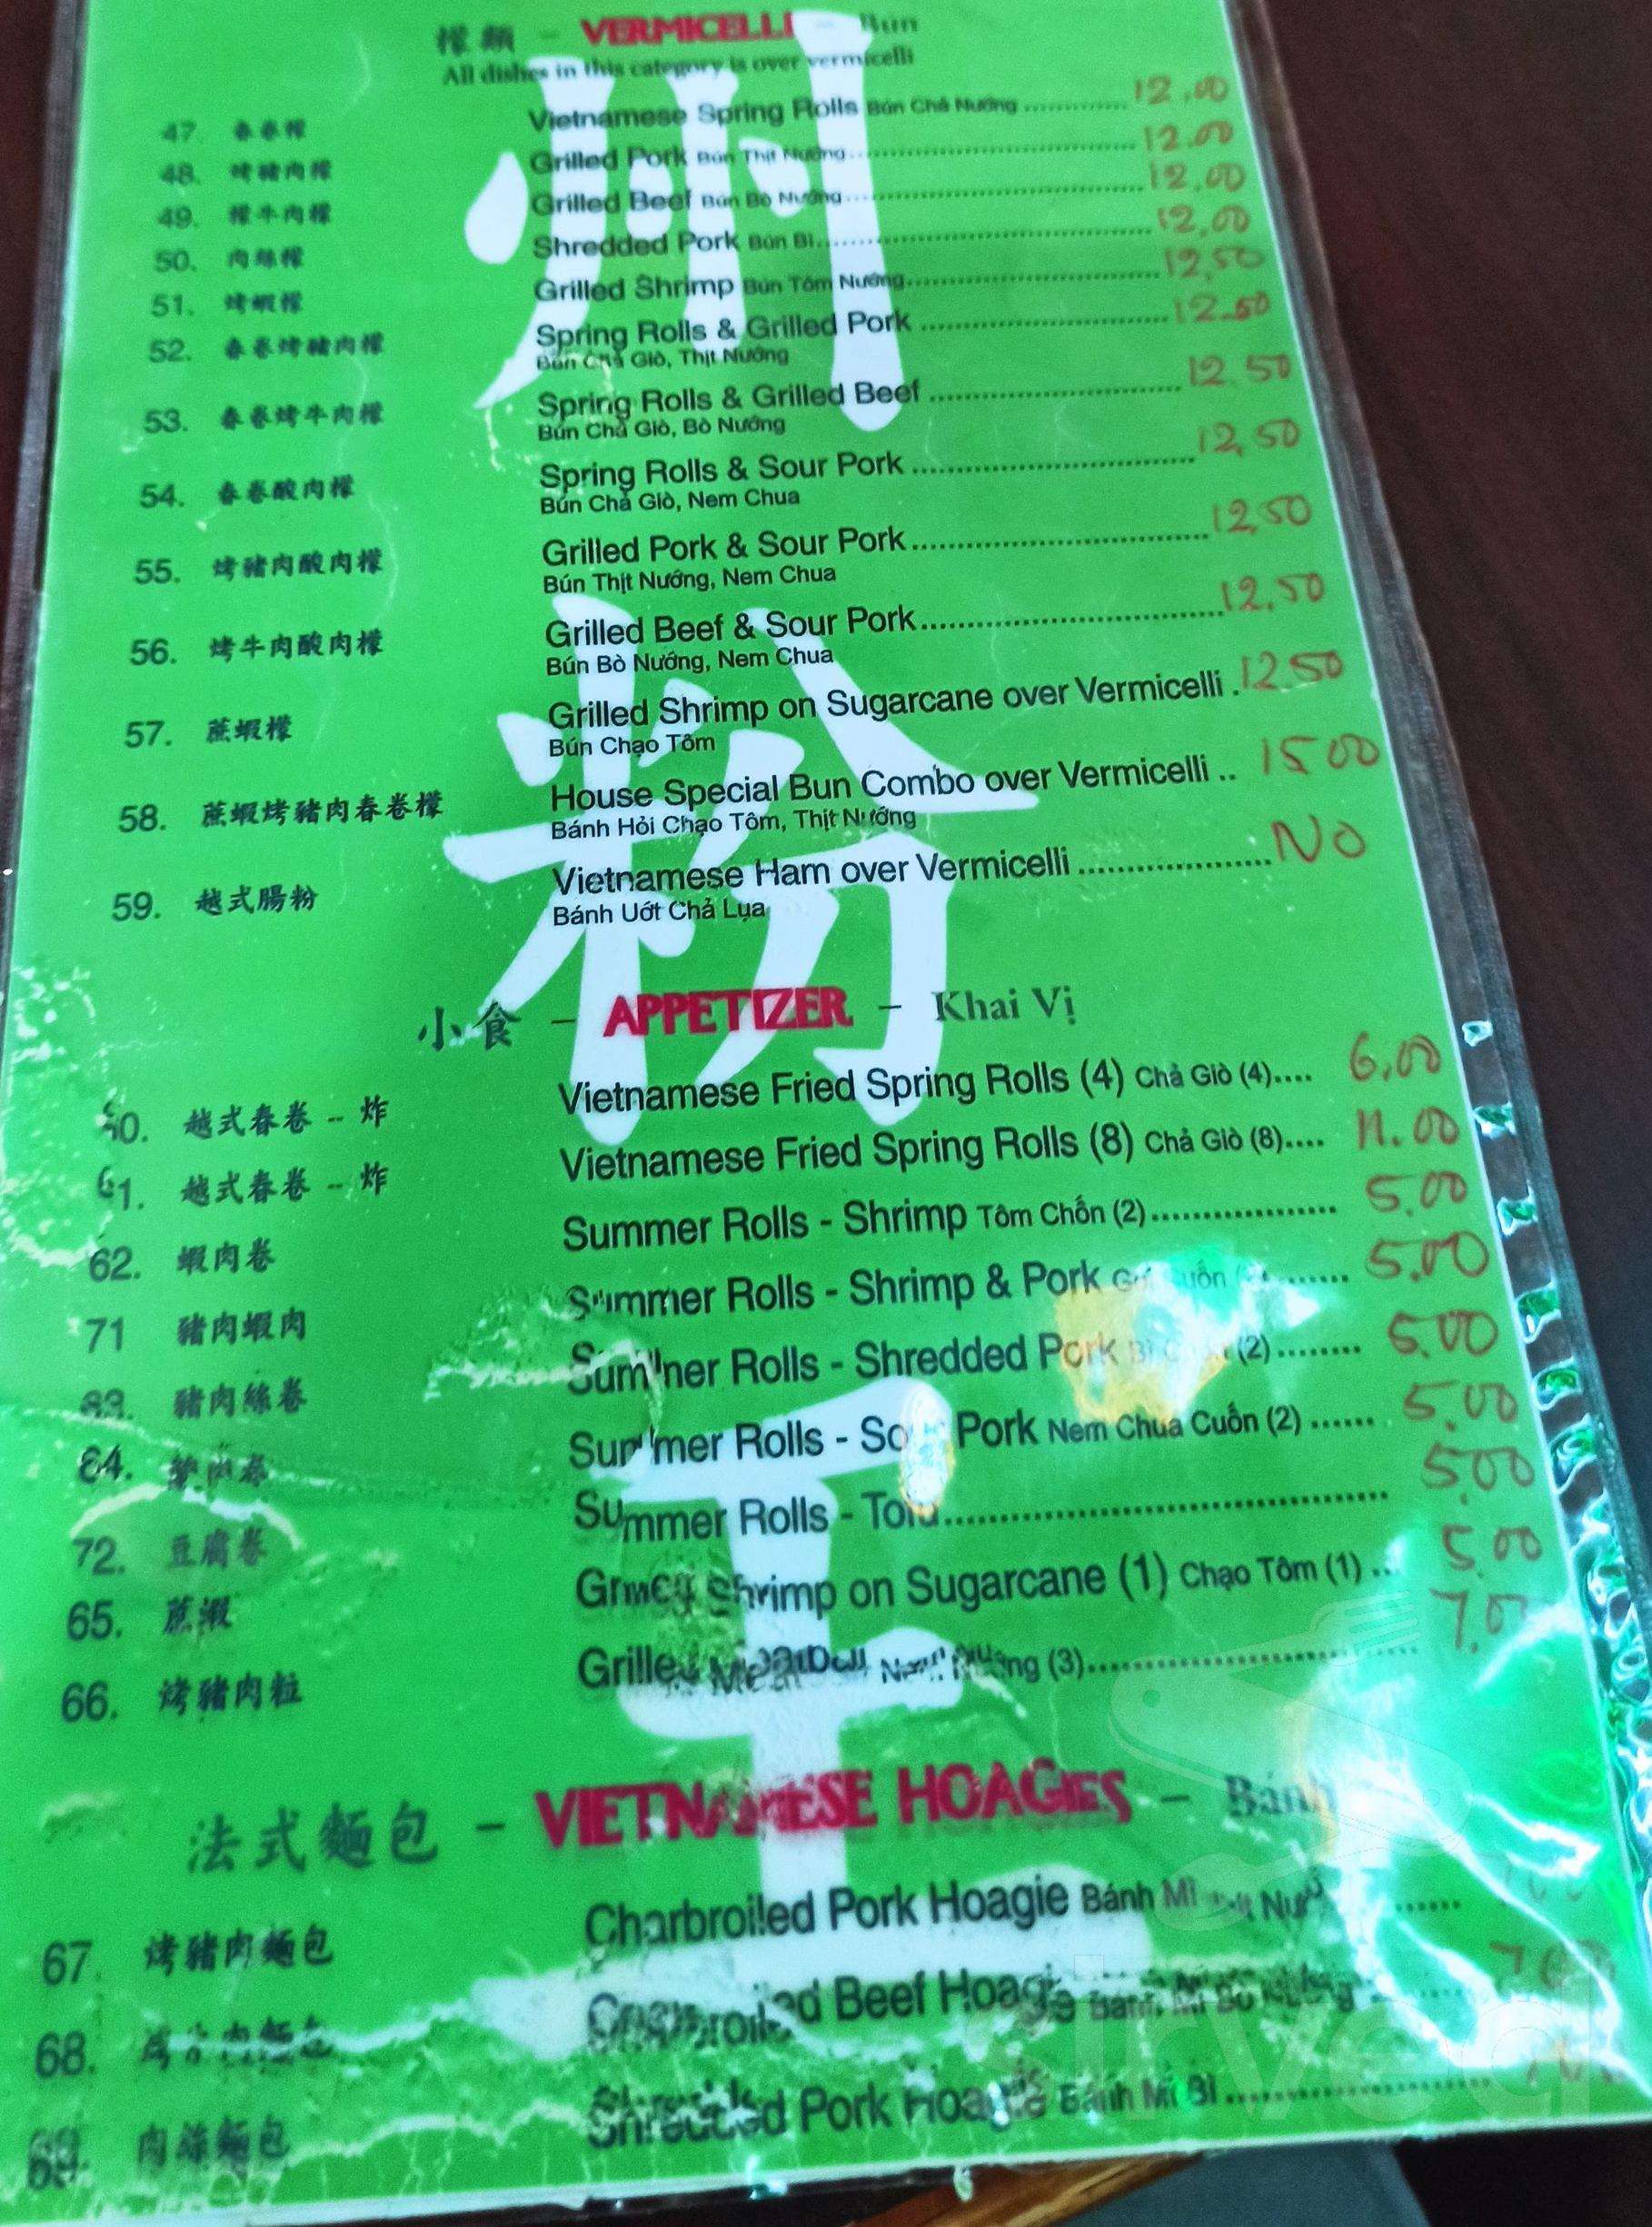 檬類 - VERMICELLI - Bún
All dishes in this category is over vermicelli
47. 春卷檬 Vietnamese Spring Rolls Bún Chả Nướng 12.00
48. 烤豬肉檬 Grilled Pork Bún Thịt Nướng 12.00
49. 檬牛肉檬 Grilled Beef Bún Bò Nướng 12.00
50. 肉絲檬 Shredded Pork Bún Bì 12.00
51. 烤蝦檬 Grilled Shrimp Bún Tôm Nướng 12.50
52. 春卷烤豬肉檬 Spring Rolls & Grilled Pork 12.50
Bún Chả Giò, Thịt Nướng
53. 春卷烤牛肉檬 Spring Rolls & Grilled Beef 12.50
Bún Chả Giò, Bò Nướng
54. 春卷酸肉檬 Spring Rolls & Sour Pork 12,50
Bún Chả Giò, Nem Chua
55. 烤豬肉酸肉檬 Grilled Pork & Sour Pork 12,50
Bún Thịt Nướng, Nem Chua
56. 烤牛肉酸肉檬 Grilled Beef & Sour Pork 12.50
Bún Bò Nướng, Nem Chua
57. 蔗蝦檬 Grilled Shrimp on Sugarcane over Vermicelli 12.50
Bún Chạo Tôm
58. 蔗蝦烤豬肉春卷檬 House Special Bun Combo over Vermicelli 15 00
Bánh Hỏi Chạo Tôm, Thịt Nướng
59. 越式腸粉 Vietnamese Ham over Vermicelli NO
Bánh Uớt Chả Lụa
小食 - APPETIZER - Khai Vị
60. 越式春卷 - 炸 Vietnamese Fried Spring Rolls (4) Chả Giò (4) 6.00
61. 越式春卷 - 炸 Vietnamese Fried Spring Rolls (8) Chả Giò (8) 11.00
62. 蝦肉卷 Summer Rolls - Shrimp Tôm Chốn (2) 5.00
71 豬肉蝦肉 Summer Rolls - Shrimp & Pork Cuốn 5.00
63. 豬肉絲卷 Summer Rolls - Shredded Pork (2) 5.00
64. Summer Rolls - Sour Pork Nem Chua Cuốn (2) 5.00
72. 豆腐卷 Summer Rolls - Tofu 5.00
65. 蔗蝦 Grilled Shrimp on Sugarcane (1) Chạo Tôm (1) 5.00
66. 烤豬肉粒 Grilled Meatball Nem Nướng (3) 7.0
法式麵包 - VIETNAMESE HOAGIES - Bánh
67. 烤豬肉麵包 Charbroiled Pork Hoagie Bánh Mì
68. Charbroiled Beef Hoagie Bánh Mì Bò Nướng 7.00
69. 肉絲麵包 Shredded Pork Hoagie Bánh Mì Bì
州粉王
sirved